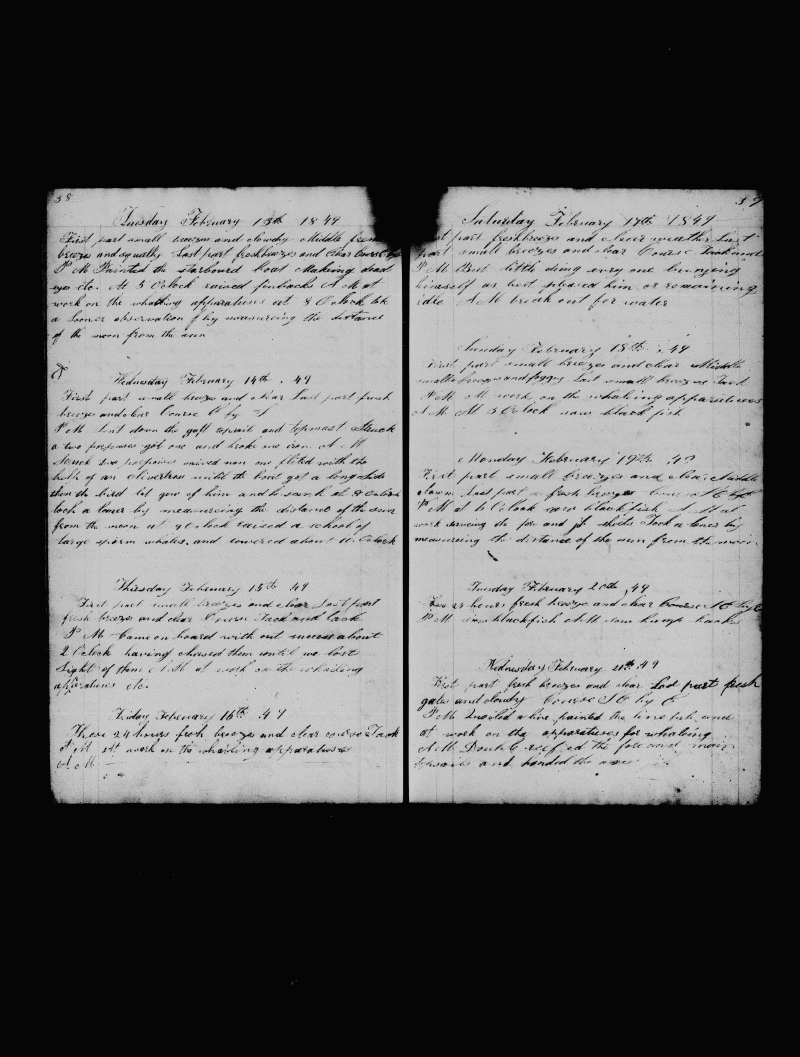 38
Tuesday February 13th 1849
First part small breezes and cloudy Middle fresh
breezes and squally Last part fresh breezes and clear Course
P M Painted the starboard boat Making dead
eyes etc. At 5 O clock raised finbacks A M at
work on the whaling apparatuses at 8 O clock tok
a Looner observation by measureing the distance
of the moon from the sun
Wednesday February 14th . 49
First part small breezes and clear Last part fresh
breezes and clear Course by
P M Sent down the gaff topsail and topmast Struck
a two porpoises got one and broke one iron A M
Struck two porpoises
but of an until the boat got a long side
then the bird let gow of him and he sank at 8 O clock
tock a loner by measureing the distance of the sun
from the moon at 9 O clock raised a school of
large sperm whales, and lowered about 10. O clock
Thirsday February 15th 49
First part small breezes and clear Last part
fresh breezes and clear Course Tack and tack
P M Came on board with out success about
2 O clock having chased them until we lost
Sight of them A M at work on the whaling
apparatuses etc.
Friday February 16th . 49
These 24 hours fresh breezes and clear course Tack
P M at work on the whaling apparatuses
A M
39
Saturday February 17th 1849
part fresh breezes and clear weather Last
part small breezes and clear Course Tack and
P M But little doing evry one busying
himself as best pleased him or remaining
idle A M break out for water
Sunday February 18th . 49
First part small breezes and clear Middle
small breezes and foggy Last small breezes Tack
P M at work on the whaling apparatuses
A M At 5 O clock saw black fish
Monday February 19th . 49
First part small breezes and clear Middle
Last part a fresh breezes Course
P M at 6 O clock saw blackfish A M at
work the fore and Took a loner by
measureing the distance of the sun from the moon.
Tuesday February 20th , 49
These 24 hours fresh breeze and clear Course S E by E
P M saw blackfish A M saw hump backs
Wednesday February 21th . 49
First part fresh breezes and clear Last part fresh
gales and cloudy Course S E by E
P M a line painted the line tub, and
at work on the apparatuses for whaleing
A M Double reefed the fore and main
topsails and handed the